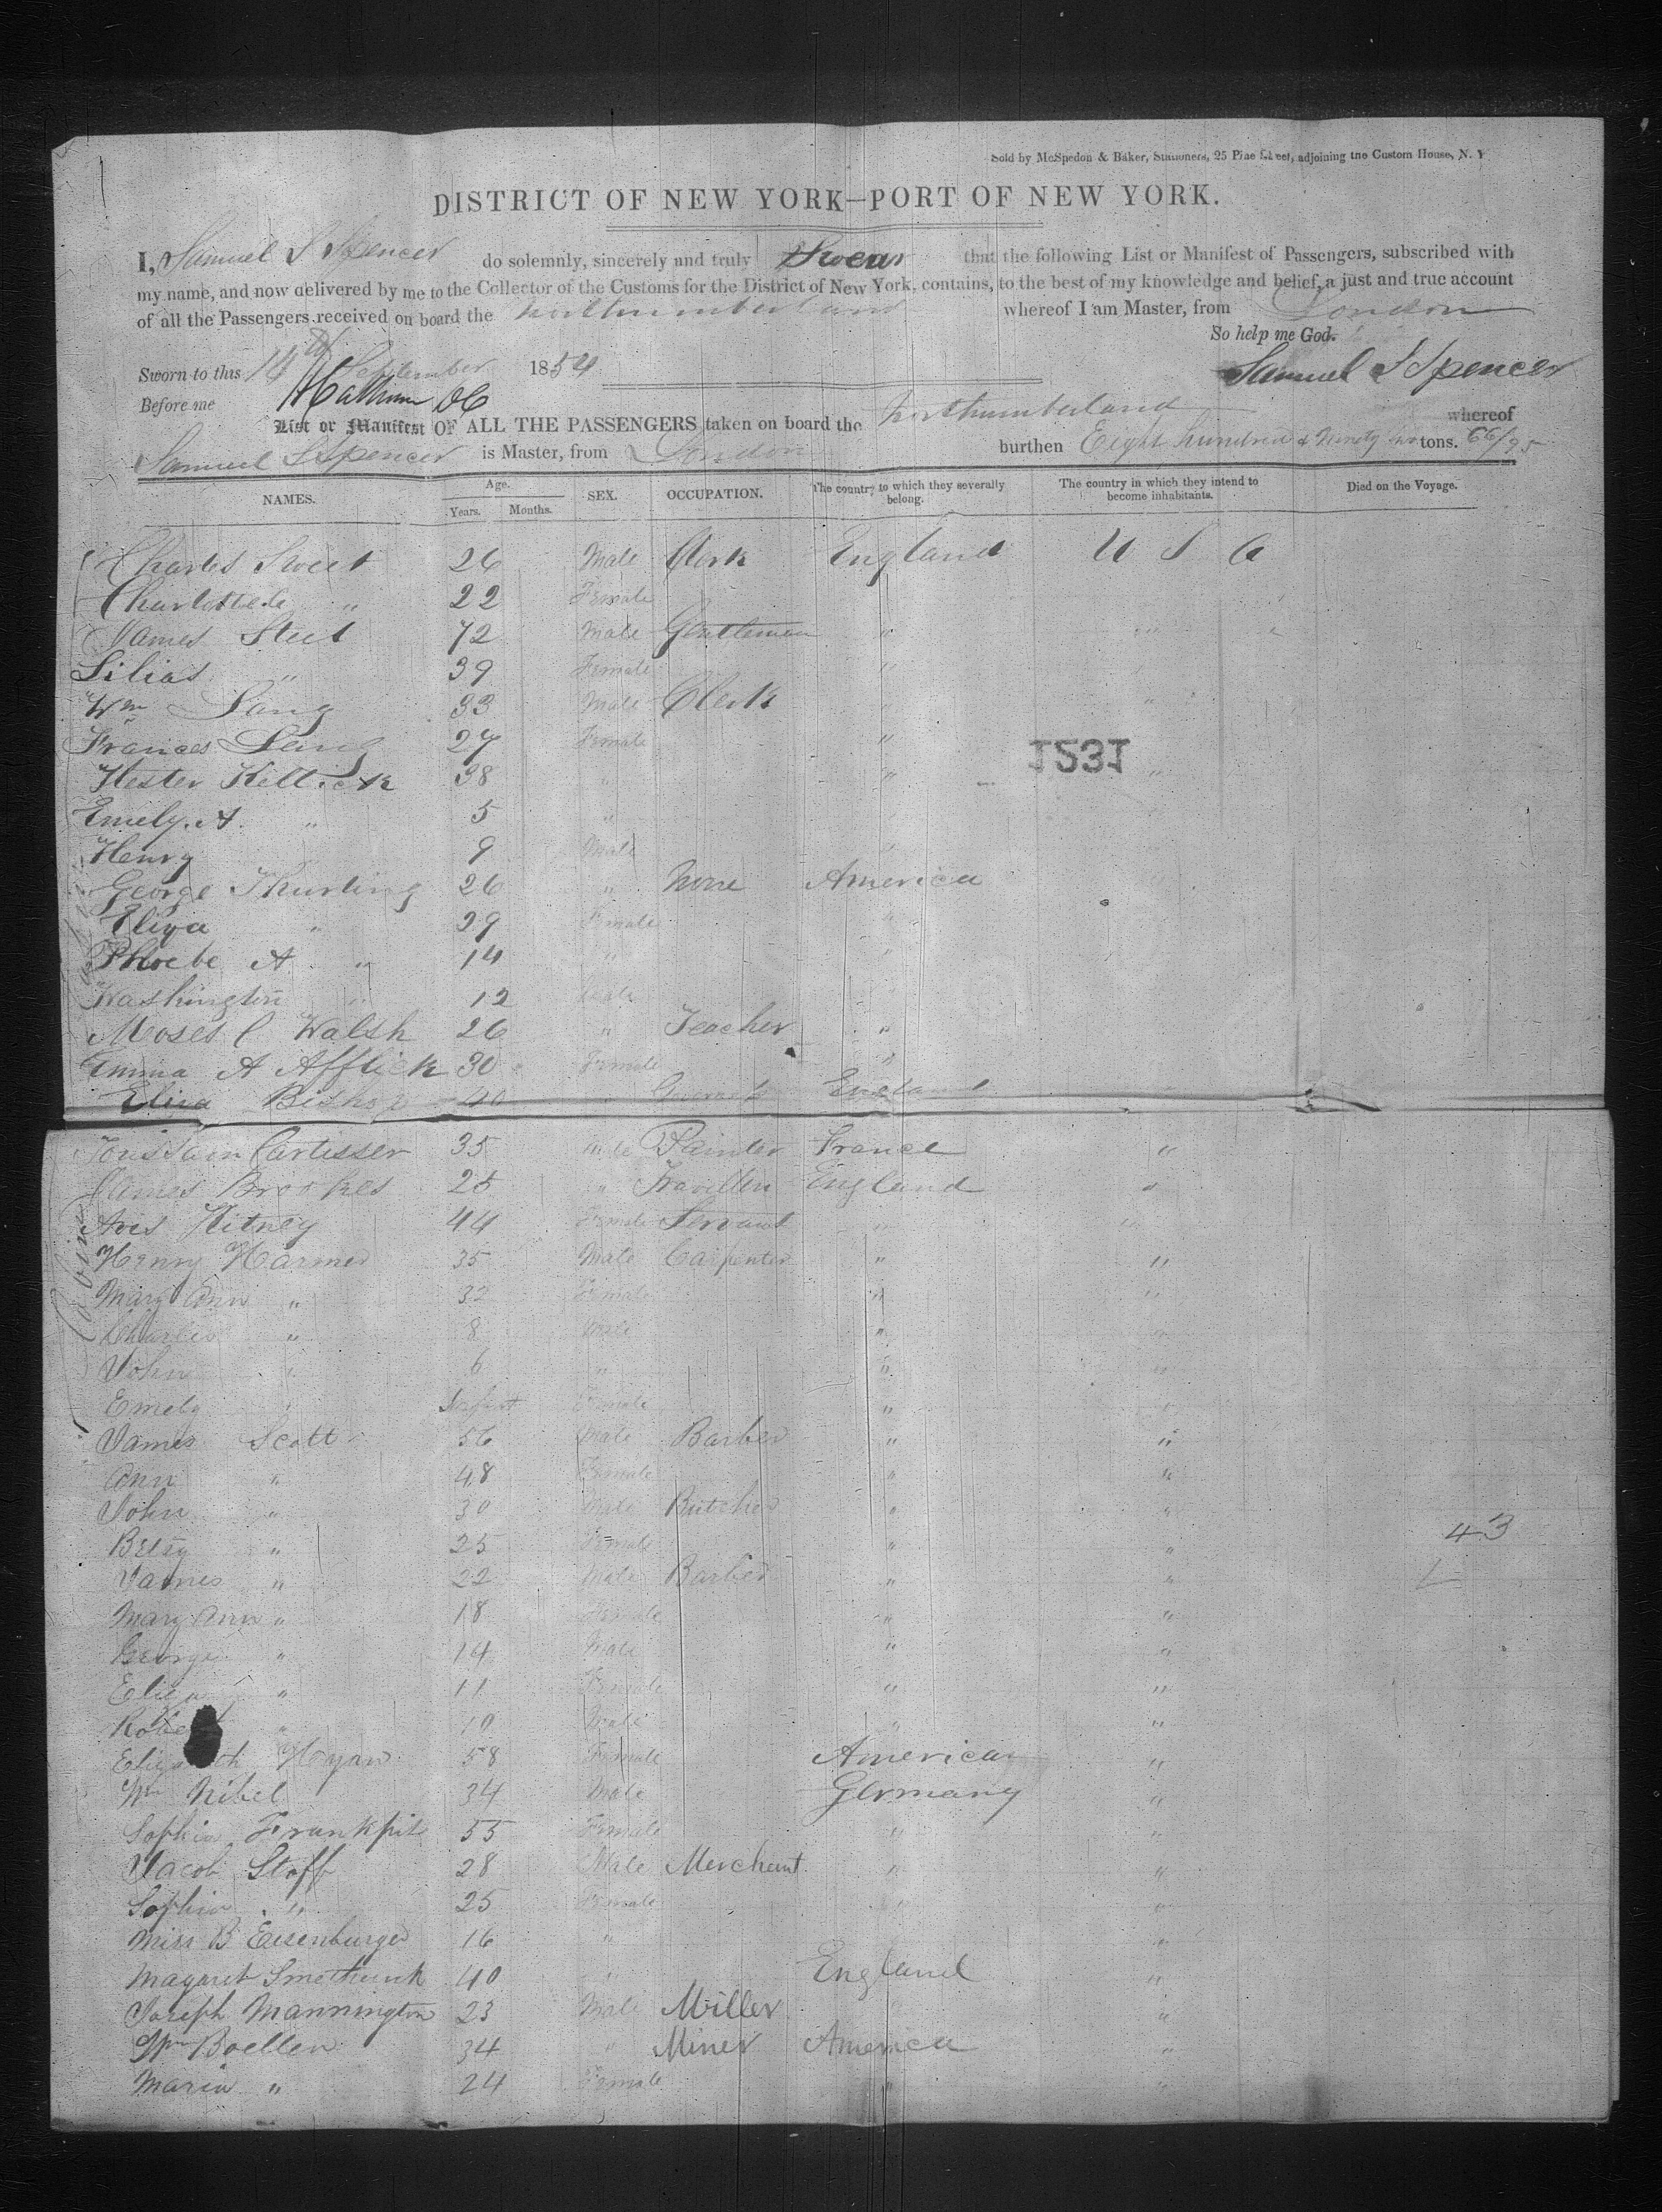 Sold by McSpedon & Baker, Stationers, 25 Pine Street, adjoining the Custom House, N. Y
DISTRICT OF NEW YORK—PORT OF NEW YORK.
I, Samuel S Spencer do solemnly, sincerely and truly Swear that the following List or Manifest of Passengers, subscribed with
my name, and now delivered by me to the Collector of the Customs for the District of New York, contains, to the best of my knowledge and belief, a just and true account
of all the Passengers received on board the Northumberland whereof I am Master, from London
So help me God.
Sworn to this 14th September 1854 Samuel S Spencer
Before me
List or Manifest OF ALL THE PASSENGERS taken on board the Northumberland whereof
Samuel S Spencer is Master, from London burthen Eight hundred & Ninety two tons. 66/95
NAMES. Age. Years. Months. SEX. OCCUPATION. The country to which they severally belong. The country in which they intend to become inhabitants. Died on the Voyage.
Charles Sweet 26 Male Clerk England U S A
Charlotte " 22 Female
James Steet 72 Male Gentleman " "
Silias " 39 Female "
Wm Lang 33 Male Clerk " "
Frances Lang 27 Female "
1531
Hester Kellick 38 " " "
Emely. A. " 5 "
Henry 9 Male "
George Thurling 26 " None America
Eliza " 29 Female "
Phoebe A " 14 " "
Washington " 12 Male
Moses C Walsh 26 " Teacher "
Emma A Afflick 30 Female "
Eliza Bishop 40 England
Cartisser 35 Male Painter France "
James Brookes 25 " Traveller England "
Aves Kitney 44 Female Servant " "
Henry Harmer 35 Male Carpenter " "
Mary Ann " 32 Female " "
Charles " 8 Male " "
John " 6 " " "
Emely " Infant Female " "
Cabin
James Scott 56 Male Barber " "
Ann " 48 Female " "
John " 30 Male Butcher " "
43
Betsy " 25 Female " "
James " 22 Male Barber " "
Mary Ann " 18 Female " "
George " 14 Male " "
Eliza " 11 Female " "
Robert " 10 Male " "
Elizabeth Hyan 58 Female America "
Wm Nibel 34 Male Germany "
Sophia Frankpit 55 Female " "
Jacob Stoff 28 Male Merchant " "
Sophia " 25 Female " "
Miss B Eisenburger 16 " "
Magaret Smethurck 40 " England "
Joseph Mannington 23 Male Miller "
Wm Boellen 34 " Miner America "
Maria " 24 Female " "